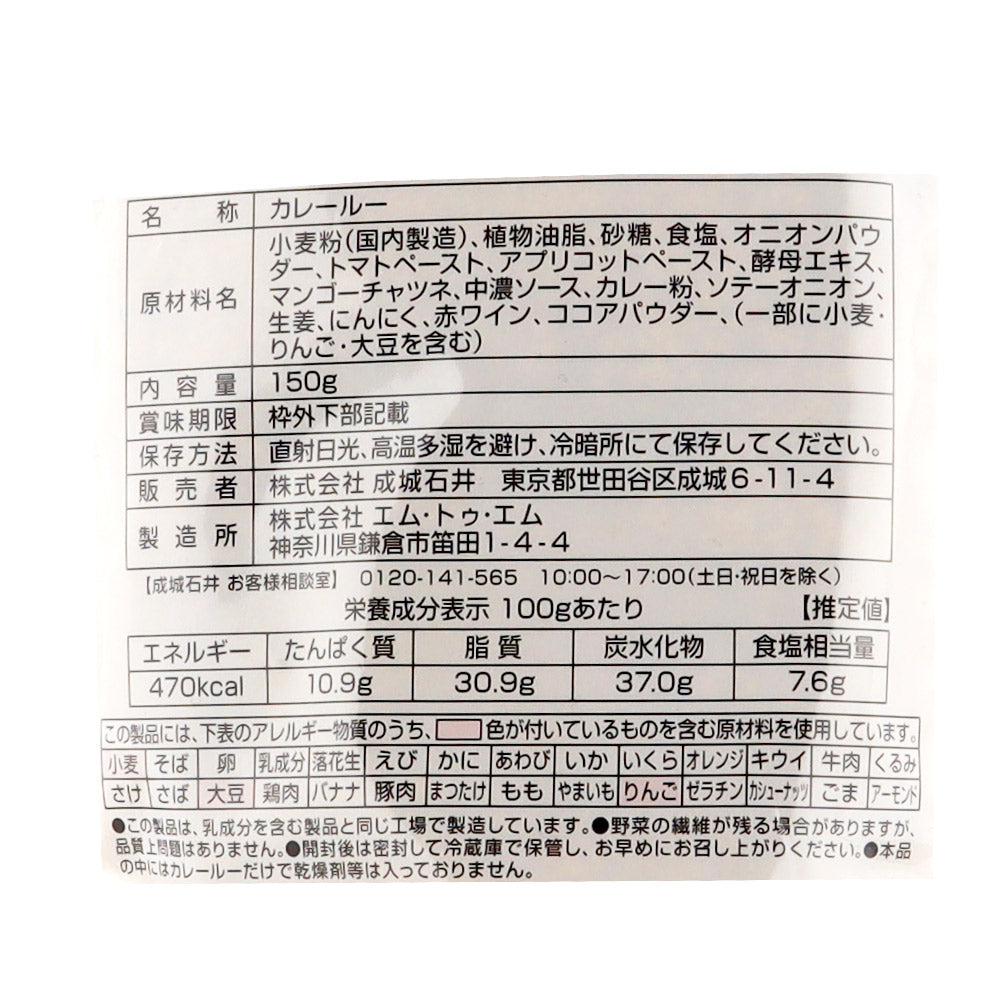 名称 カレールー
原材料名 小麦粉(国内製造)、植物油脂、砂糖、食塩、オニオンパウ
ダー、トマトペースト、アプリコットペースト、酵母エキス、
マンゴーチャツネ、中濃ソース、カレー粉、ソテーオニオン、
生姜、にんにく、赤ワイン、ココアパウダー、(一部に小麦・
りんご・大豆を含む)
内容量 150g
賞味期限 枠外下部記載
保存方法 直射日光、高温多湿を避け、冷暗所にて保存してください。
販売者 株式会社 成城石井 東京都世田谷区成城6-11-4
製造所 株式会社 エム・トゥ・エム
神奈川県鎌倉市笛田1-4-4
【成城石井 お客様相談室】 0120-141-565 10:00~17:00(土日・祝日を除く)
栄養成分表示 100gあたり 【推定値】
エネルギー たんぱく質 脂質 炭水化物 食塩相当量
470kcal 10.9g 30.9g 37.0g 7.6g
この製品には、下表のアレルギー物質のうち、 色が付いているものを含む原材料を使用しています。
小麦 そば 卵 乳成分 落花生 えび かに あわび いか いくら オレンジ キウイ 牛肉 くるみ
さけ さば 大豆 鶏肉 バナナ 豚肉 まつたけ もも やまいも りんご ゼラチン カシューナッツ ごま アーモンド
●この製品は、乳成分を含む製品と同じ工場で製造しています。●野菜の繊維が残る場合がありますが、
品質上問題はありません。●開封後は密封して冷蔵庫で保管し、お早めにお召し上がりください。●本品
の中にはカレールーだけで乾燥剤等は入っておりません。